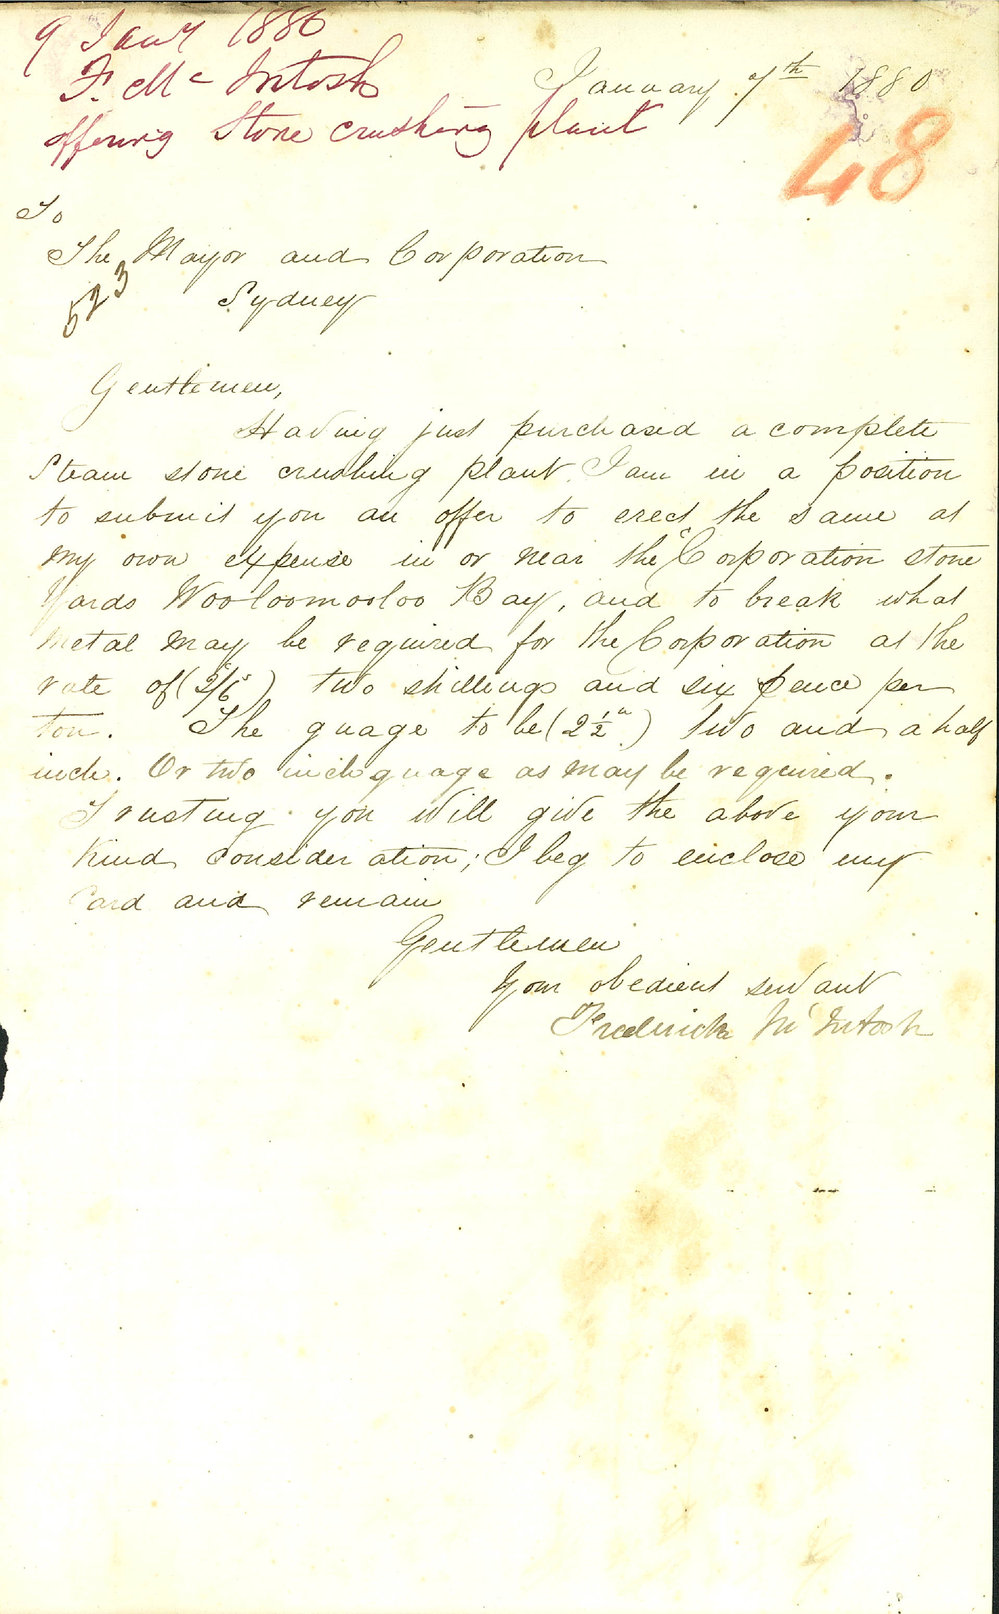 9 Jany 1880
F. Mc Intosh
offering Stone crushing plant
January 7th 1880
48
To
The Mayor and Corporation
523
Sydney
Gentlemen,
Having just purchased a complete
Steam stone crushing plant. I am in a position
to submit you an offer to erect the same at
my own expense in or near the Corporation stone
Yards Wooloomooloo Bay, and to break what
metal may be required for the Corporation at the
rate of (2/6) two shillings and six pence per
ton. The guage to be (2 1/2") two and a half
inch. Or two inch guage as may be required.
Trusting you will give the above your
kind consideration; I beg to enclose my
Card and remain
Gentlemen
Your obedient servant
Frederick McIntosh